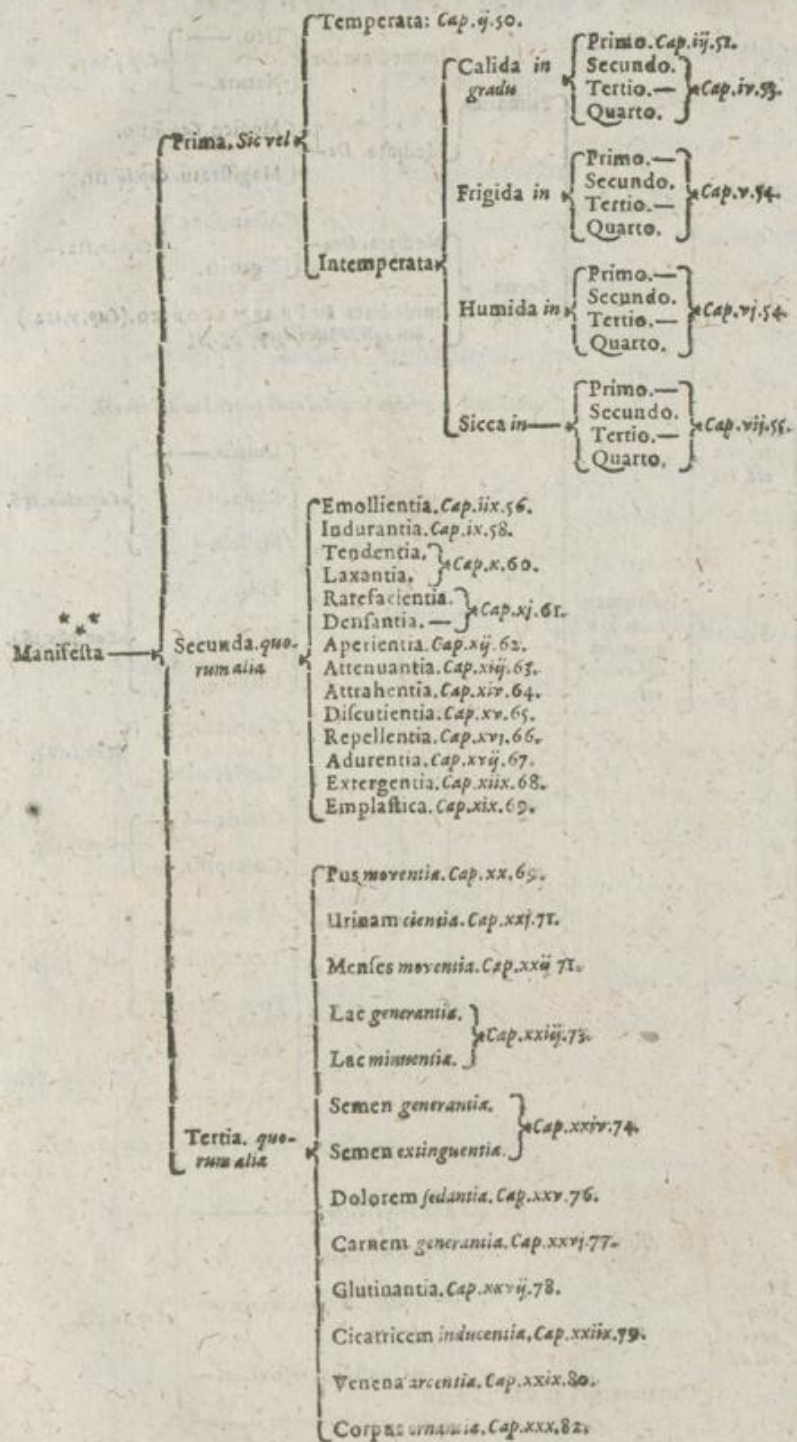 Temperata: Cap. ij. 50.
Prima. Sic vel
Intemperata
Calida in
gradu
Primo. Cap. iij. 52.
Secundo.
Tertio.—
Quarto.
Cap. iv. 53.
Frigida in
Primo.—
Secundo.
Tertio.—
Quarto.
Cap. v. 54.
Humida in
Primo.—
Secundo.
Tertio.—
Quarto.
Cap. vj. 54.
Sicca in—
Primo.—
Secundo.
Tertio.—
Quarto.
Cap. vij. 55.
***
Manifeſta
Secunda. quo-
rum alia
Emollientia. Cap. iix. 56.
Indurantia. Cap. ix. 58.
Tendentia.
Laxantia.
Cap. x. 60.
Rarefacientia.
Denſantia. —
Cap. xj. 61.
Aperientia. Cap. xij. 62.
Attenuantia. Cap. xiij. 63.
Attrahentia. Cap. xiv. 64.
Diſcutientia. Cap. xv. 65.
Repellentia. Cap. xvj. 66.
Adurentia. Cap. xvij. 67.
Extergentia. Cap. xiix. 68.
Emplaſtica. Cap. xix. 69.
Tertia. quo-
rum alia
Pus moventia. Cap. xx. 69.
Urinam cientia. Cap. xxj. 71.
Menſes moventia. Cap. xxij 71.
Lac generantia.
Lac minuentia.
Cap. xxiij. 73.
Semen generantia.
Semen extinguentia.
Cap. xxiv. 74.
Dolorem ſedantia. Cap. xxv. 76.
Carnem generantia. Cap. xxvj. 77.
Glutinantia. Cap. xxvij. 78.
Cicatricem inducentia. Cap. xxiix. 79.
Venena arcentia. Cap. xxix. 80.
Corpus ornantia. Cap. xxx. 82.